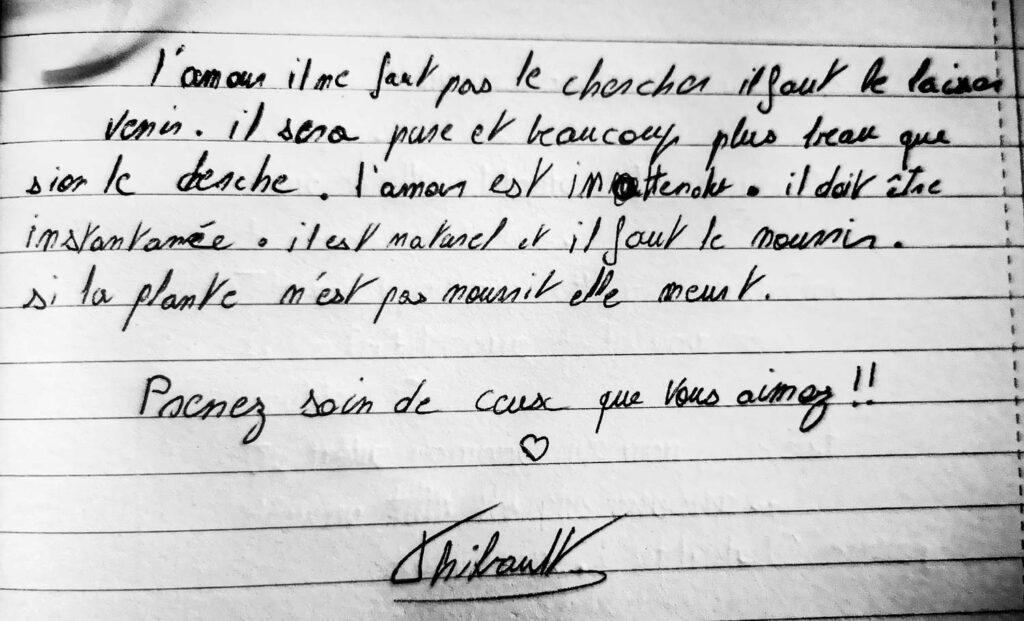 l'amour il ne faut pas le chercher il faut le laisser
venir. il sera pure et beaucoup plus beau que
si on le cherche. l'amour est inattendu. il doit être
instantanée. il est naturel et il faut le nourrir.
si la plante n'est pas nourrit elle meurt.
Prenez soin de ceux que vous aimez !!
♡
Thibault.